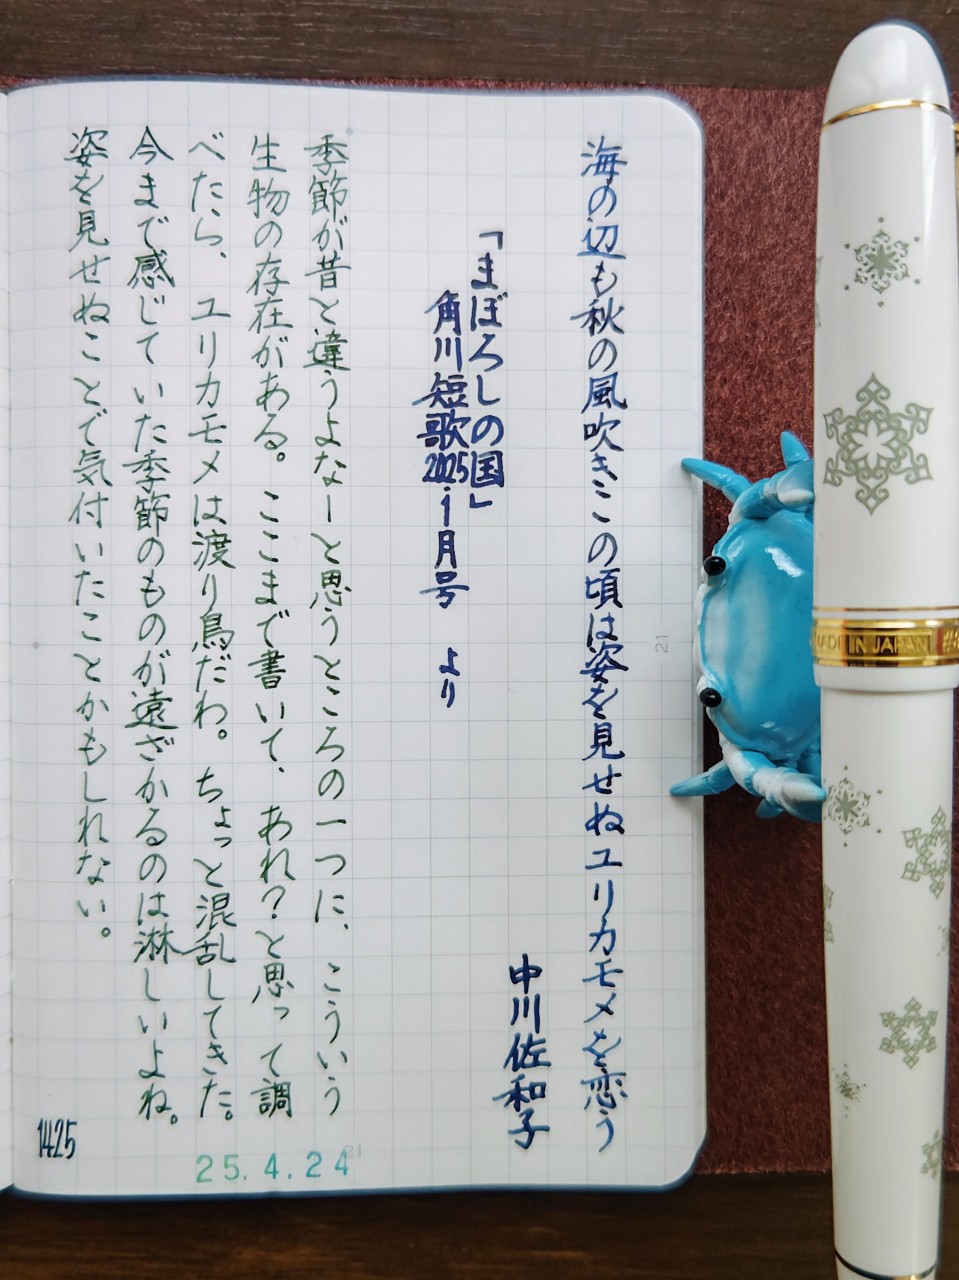 海の辺も秋の風吹きこの頃は姿を見せぬユリカモメを恋う
中川佐和子
「まぼろしの国」
角川短歌2025.1月号 より
季節が昔と違うよなーと思うところの一つに、こういう
生物の存在がある。ここまで書いて、あれ？と思って調
べたら、ユリカモメは渡り鳥だわ。ちょっと混乱してきた。
今まで感じていた季節のものが遠ざかるのは淋しいよね。
姿を見せぬことで気付いたことかもしれない。
25.4.24
1425
21
21
MADE IN JAPAN